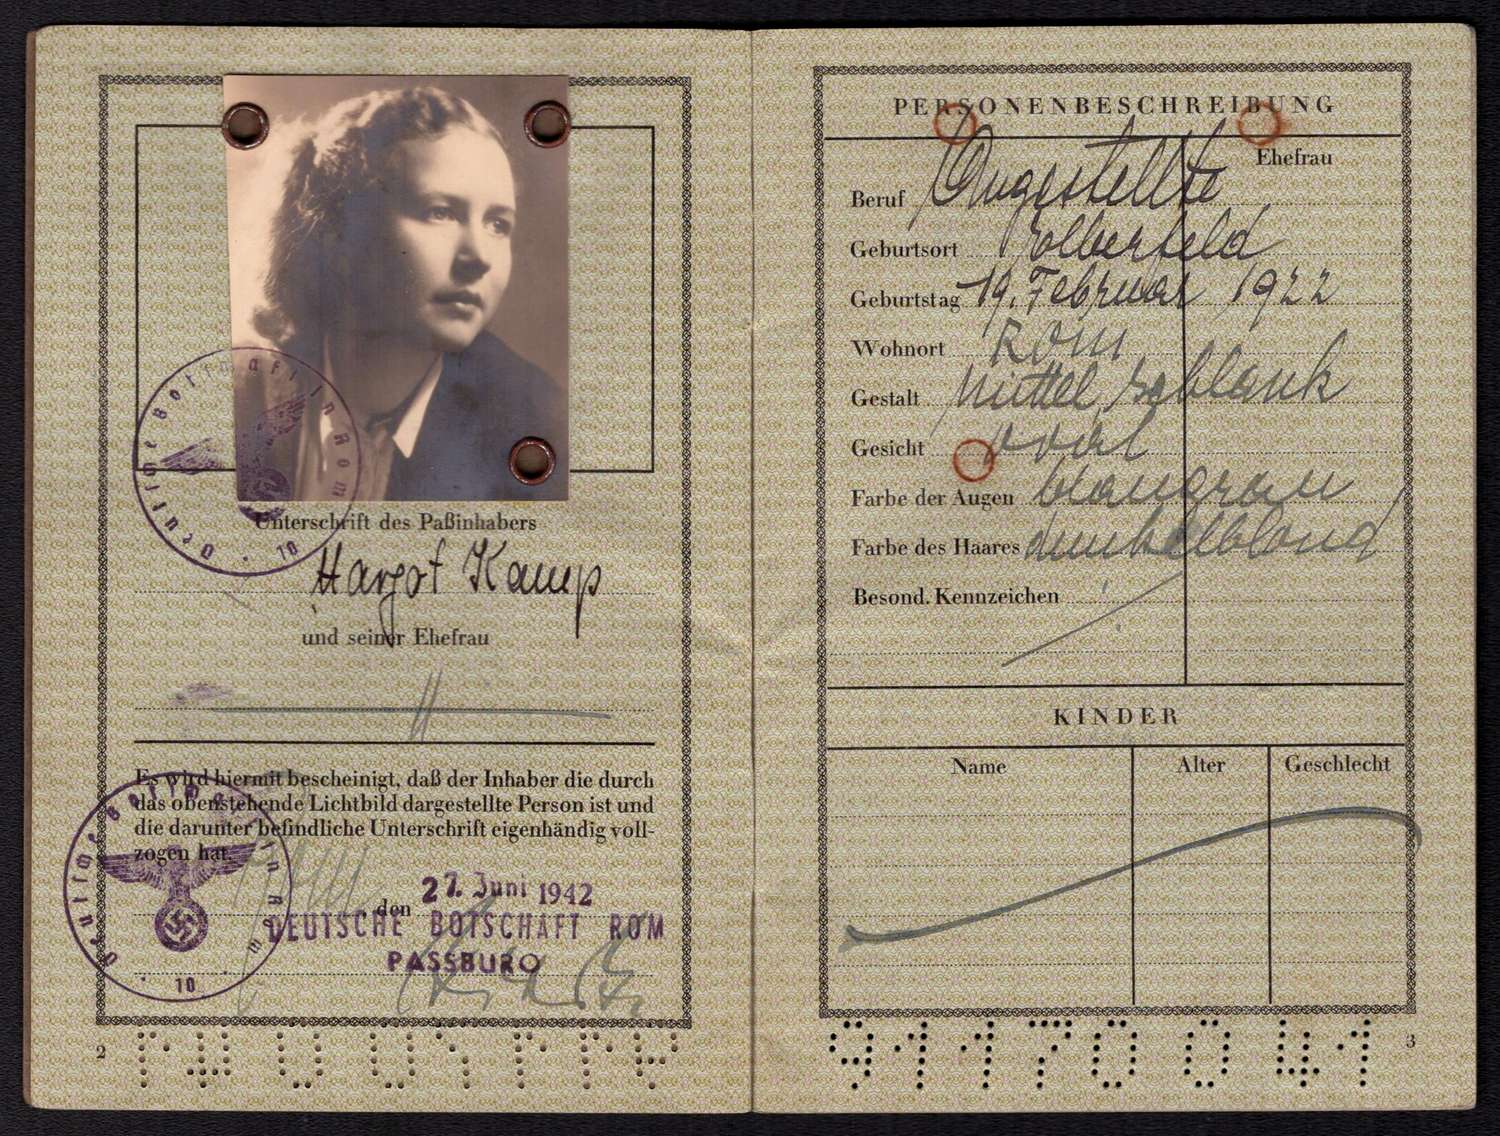 Unterschrift des Paßinhabers
Margot Kamp
und seiner Ehefrau
Es wird hiermit bescheinigt, daß der Inhaber die durch
das obenstehende Lichtbild dargestellte Person ist und
die darunter befindliche Unterschrift eigenhändig voll-
zogen hat.
, den 27. Juni 1942
DEUTSCHE BOTSCHAFT ROM
PASSBÜRO
Deutsche Botschaft in Rom
10
Deutsche Botschaft in Rom
10
2
PERSONENBESCHREIBUNG
Ehefrau
Beruf Angestellte
Geburtsort
Geburtstag 19. Februar 1922
Wohnort Rom
Gestalt Mittel, schlank
Gesicht oval
Farbe der Augen blaugrau
Farbe des Haares dunkelblond
Besond. Kennzeichen
KINDER
Name Alter Geschlecht
91170 0 41
3